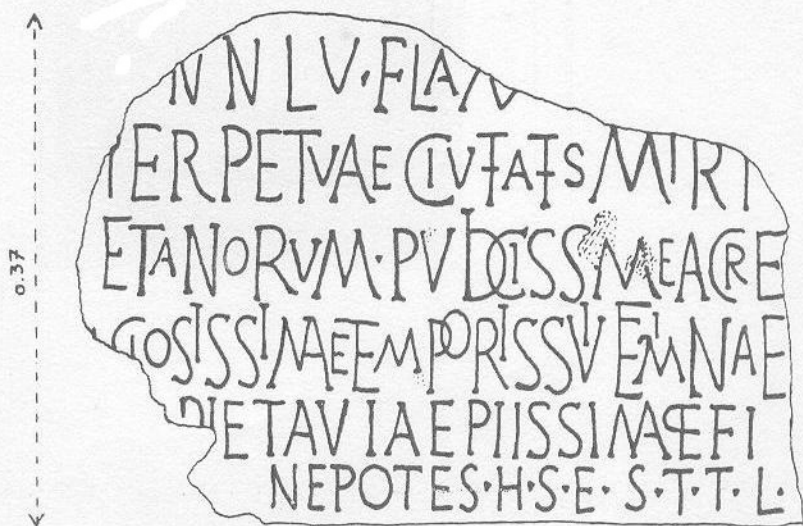 0.37
N N LV · FLAM
PERPETVAE CIVITATIS MIRI
ETANORVM · PVDICISSIMEACRE
GIOSISSIMAETEMPORISSVIFEMINAE
ETAVIAEPIISSIMAEFI
NEPOTES·H·S·E· S·T·T·L·